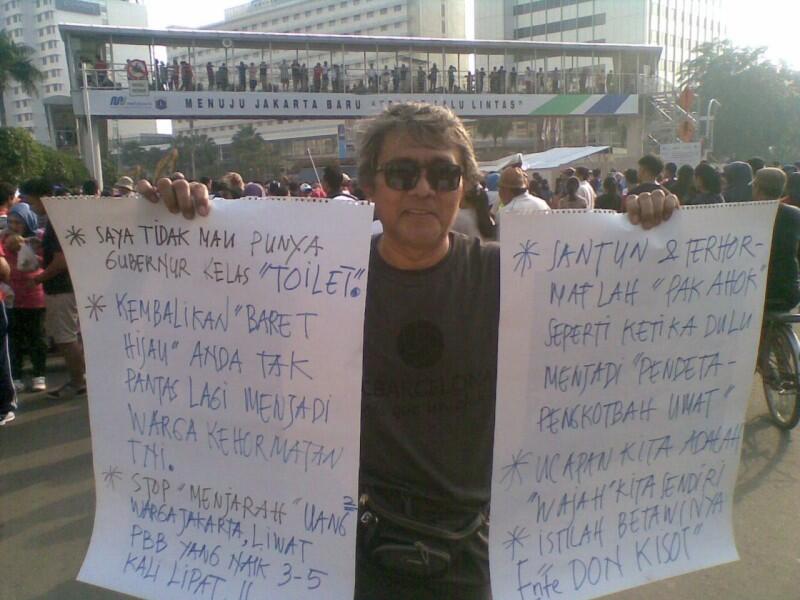 MENUJU JAKARTA BARU "TERTIB LALU LINTAS"
* SAYA TIDAK MAU PUNYA
GUBERNUR KELAS "TOILET".
* KEMBALIKAN "BARET
HIJAU" ANDA TAK
PANTAS LAGI MENJADI
WARGA KEHORMATAN
TNI.
* STOP "MENJARAH" UANG2
WARGA JAKARTA, LIWAT
PBB YANG NAIK 3-5
KALI LIPAT.!!
* SANTUN & TERHOR-
MATLAH "PAK AHOK"
SEPERTI KETIKA DULU
MENJADI "PENDETA-
PENGKOTBAH UMAT"
* UCAPAN KITA ADALAH
"WAJAH" KITA SENDIRI
* ISTILAH BETAWINYA
Ente DON KISOT"
BARCELONA